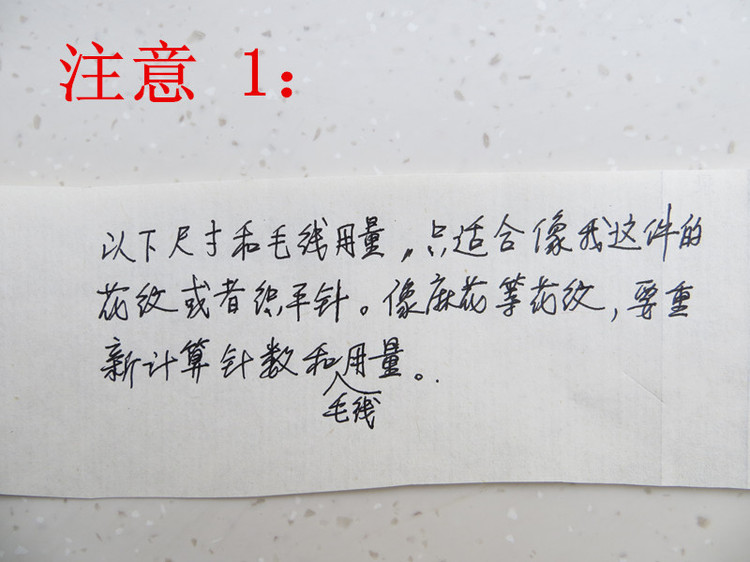 注意 1:
以下尺寸和毛线用量,只适合像我这件的
花纹或者织平针。像麻花等花纹,要重
新计算针数和用量。
毛线